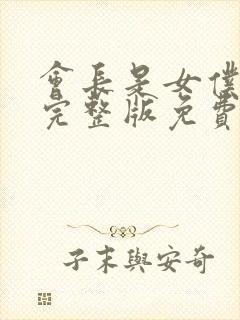 會長是女僕
完整版免費
子末與安奇